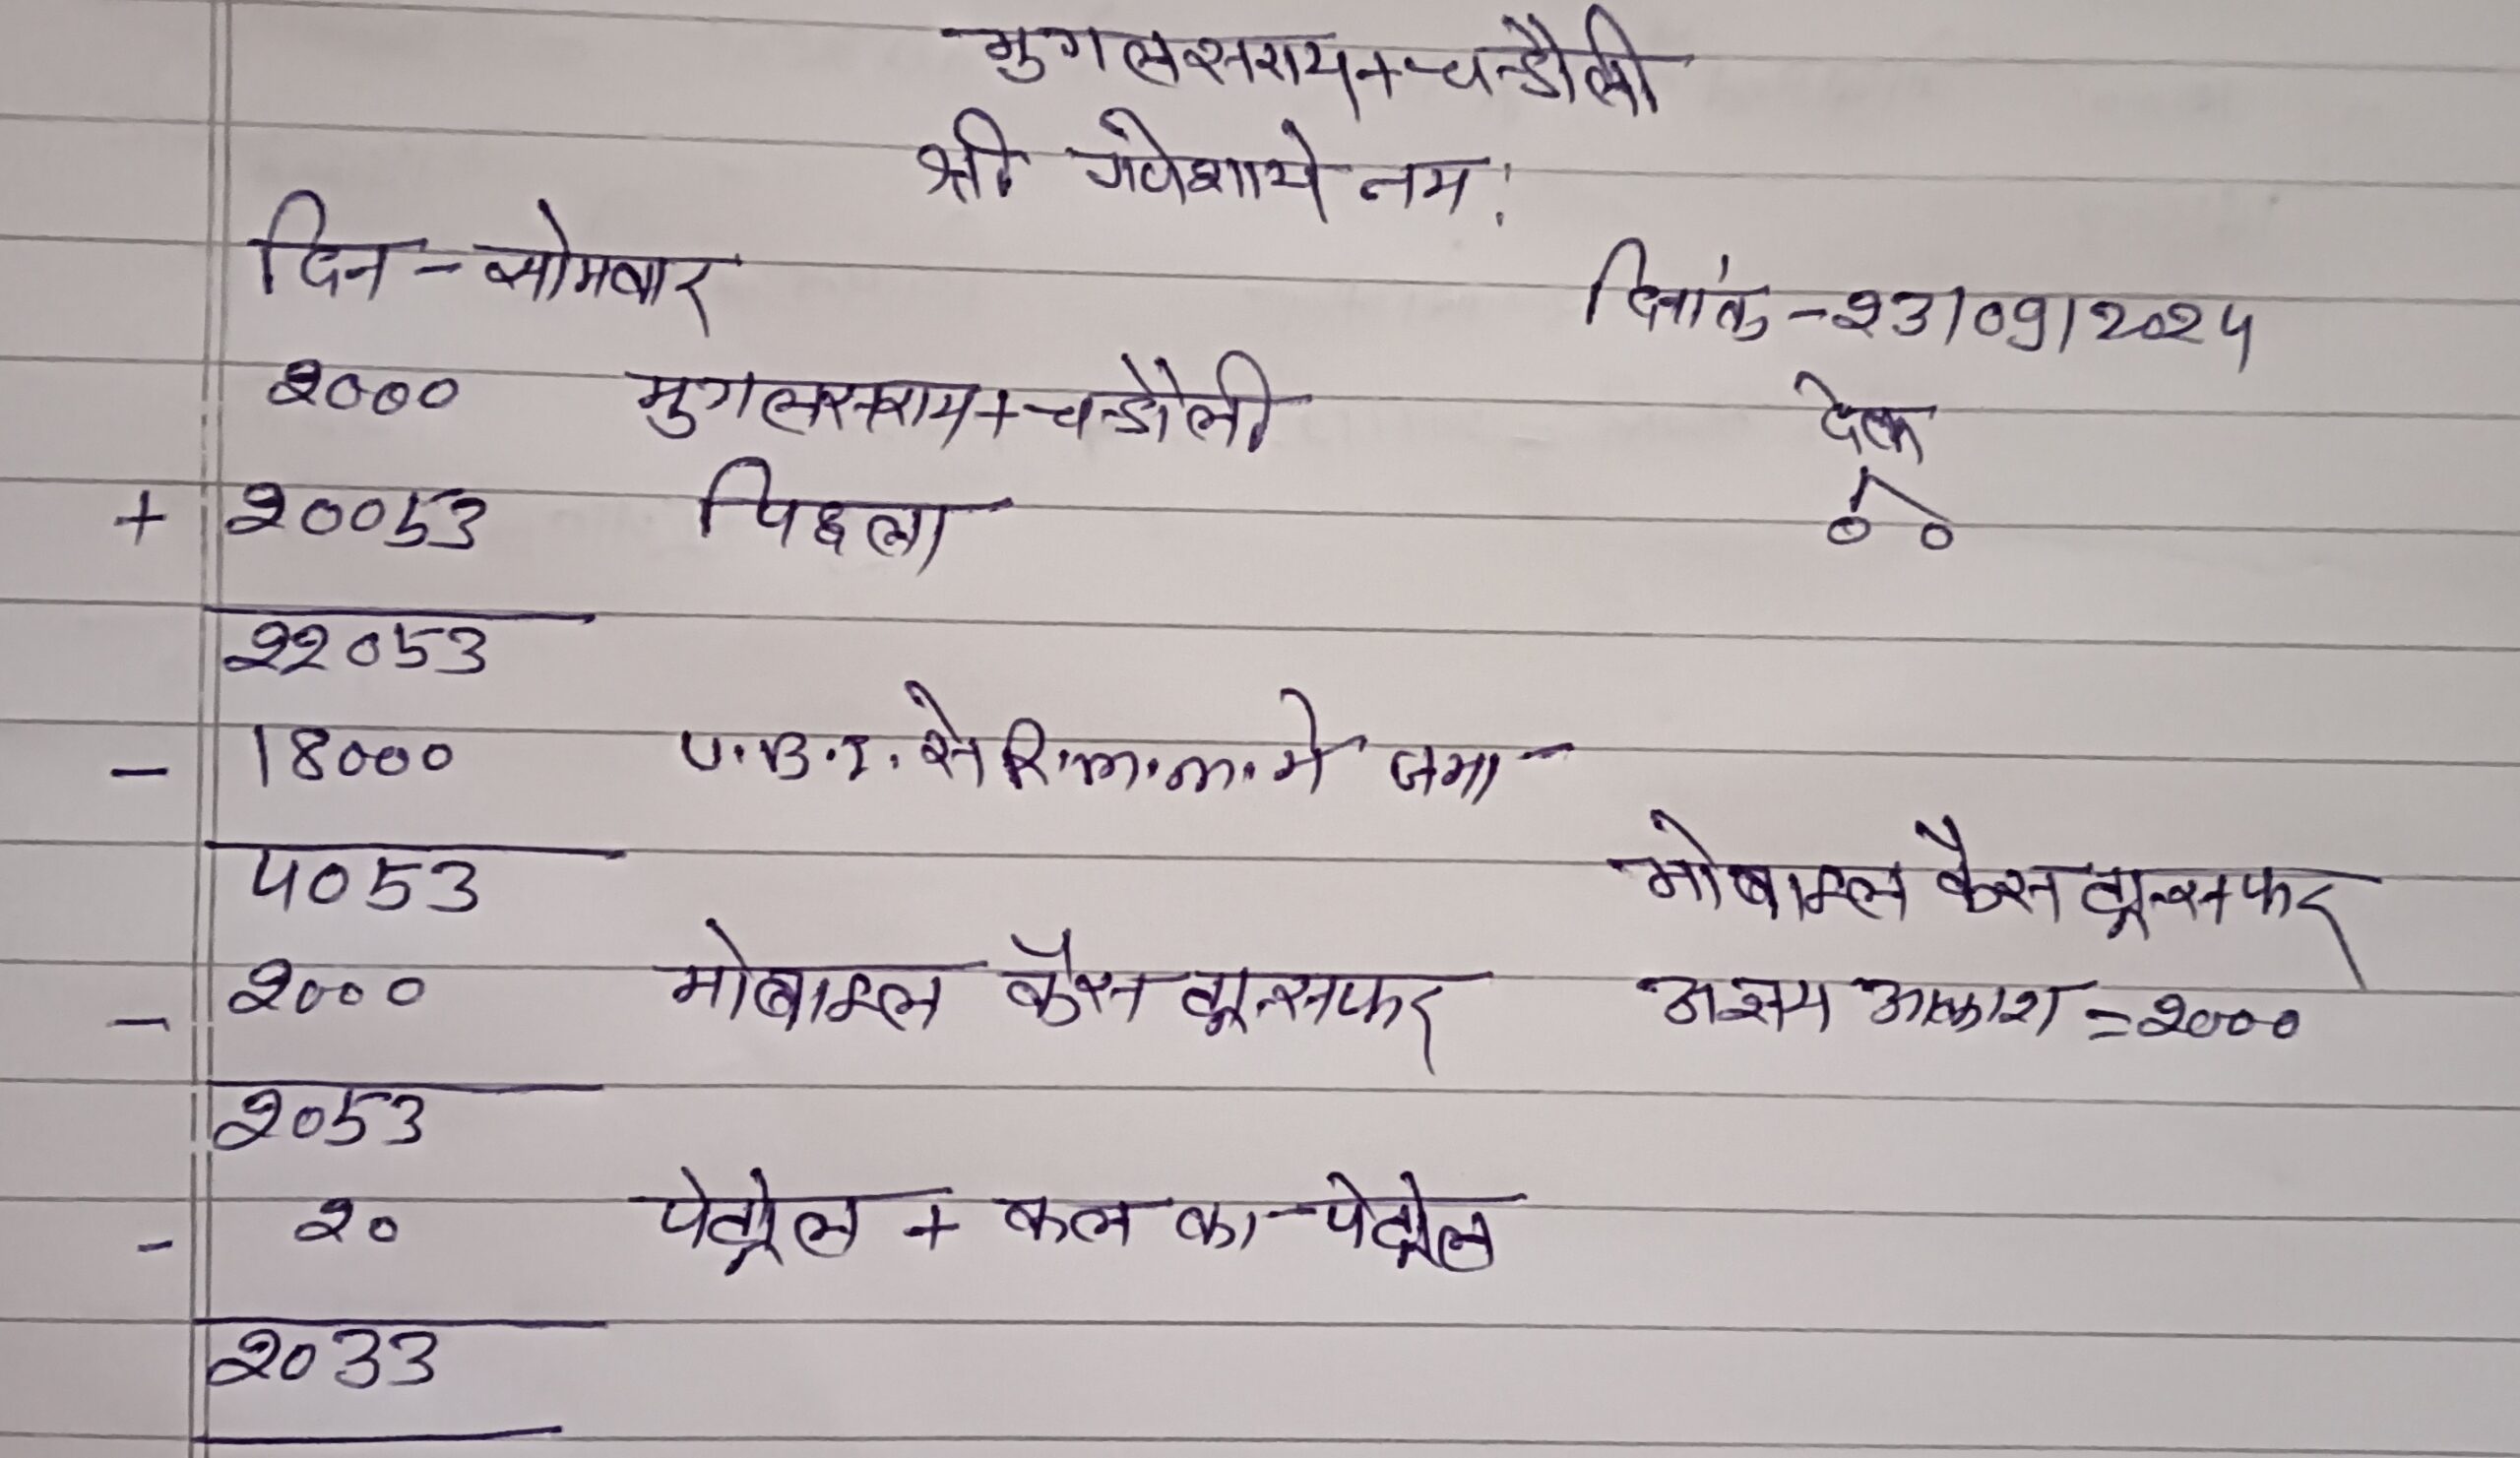 मुगलसराय+चन्डौली
श्री गणेशाये नम:
दिन - सोमबार
दिनांक - 23/09/2024
2000 मुगलसराय+चन्डौली
+ 20053 पिछला
22053
- 18000 U.B.I. से R.m.m. मे जमा -
4053
मोबाइल कैस ट्रान्सफर
- 2000 मोबाइल कैस ट्रान्सफर अजय आकाश = 2000
2053
- 20 पेट्रोल + कल का पेट्रोल
2033